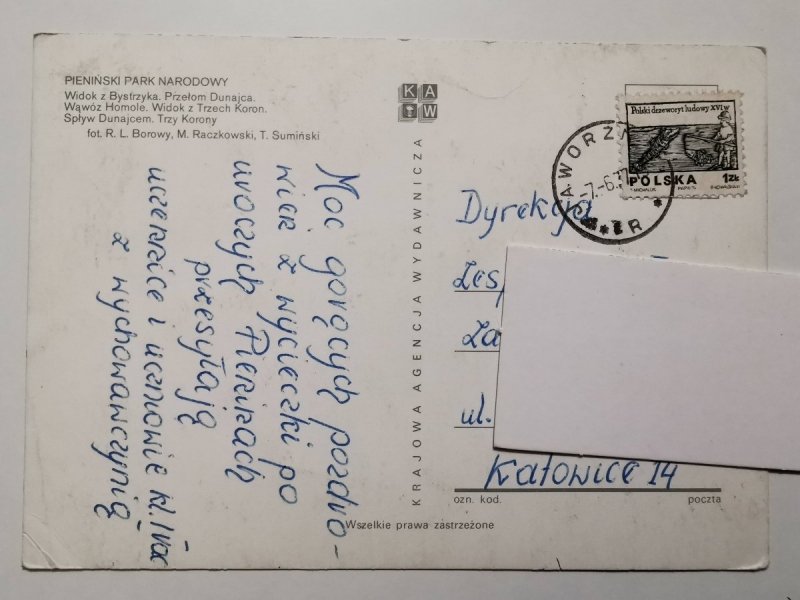 PIENIŃSKI PARK NARODOWY
Widok z Bystrzyka. Przełom Dunajca.
Wąwóz Homole. Widok z Trzech Koron.
Spływ Dunajcem. Trzy Korony
fot. R. L. Borowy, M. Raczkowski, T. Sumiński
Moc gorących pozdro-
wień z wycieczki po
uroczych Pieninach
przesyłają
uczennice i uczniowie kl. IVa
z wychowawczynią
KAW
KRAJOWA AGENCJA WYDAWNICZA
Wszelkie prawa zastrzeżone
Polski drzeworyt ludowy XVI w
POLSKA 1 ZŁ
JAWORZ
7-6.77
Dyrekcja
Zes
Za
ul.
Katowice 14
ozn. kod.
poczta